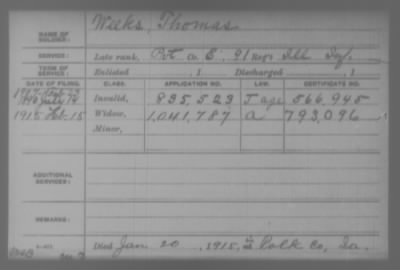 NAME OF SOLDIER: Weeks, Thomas
SERVICE: Late rank, Pvt Co. E, 91 Reg't Ill Inf.
TERM OF SERVICE: Enlisted , 1 Discharged , 1
DATE OF FILING. CLASS. APPLICATION NO. LAW. CERTIFICATE NO.
1890 July 14 Invalid, 835,523 J age 566,945
1915 Feb. 15 Widow, 1,041,787 a 793,096
Minor,
ADDITIONAL SERVICES:
REMARKS:
Died Jan 20, 1915, Polk Co, Ia.